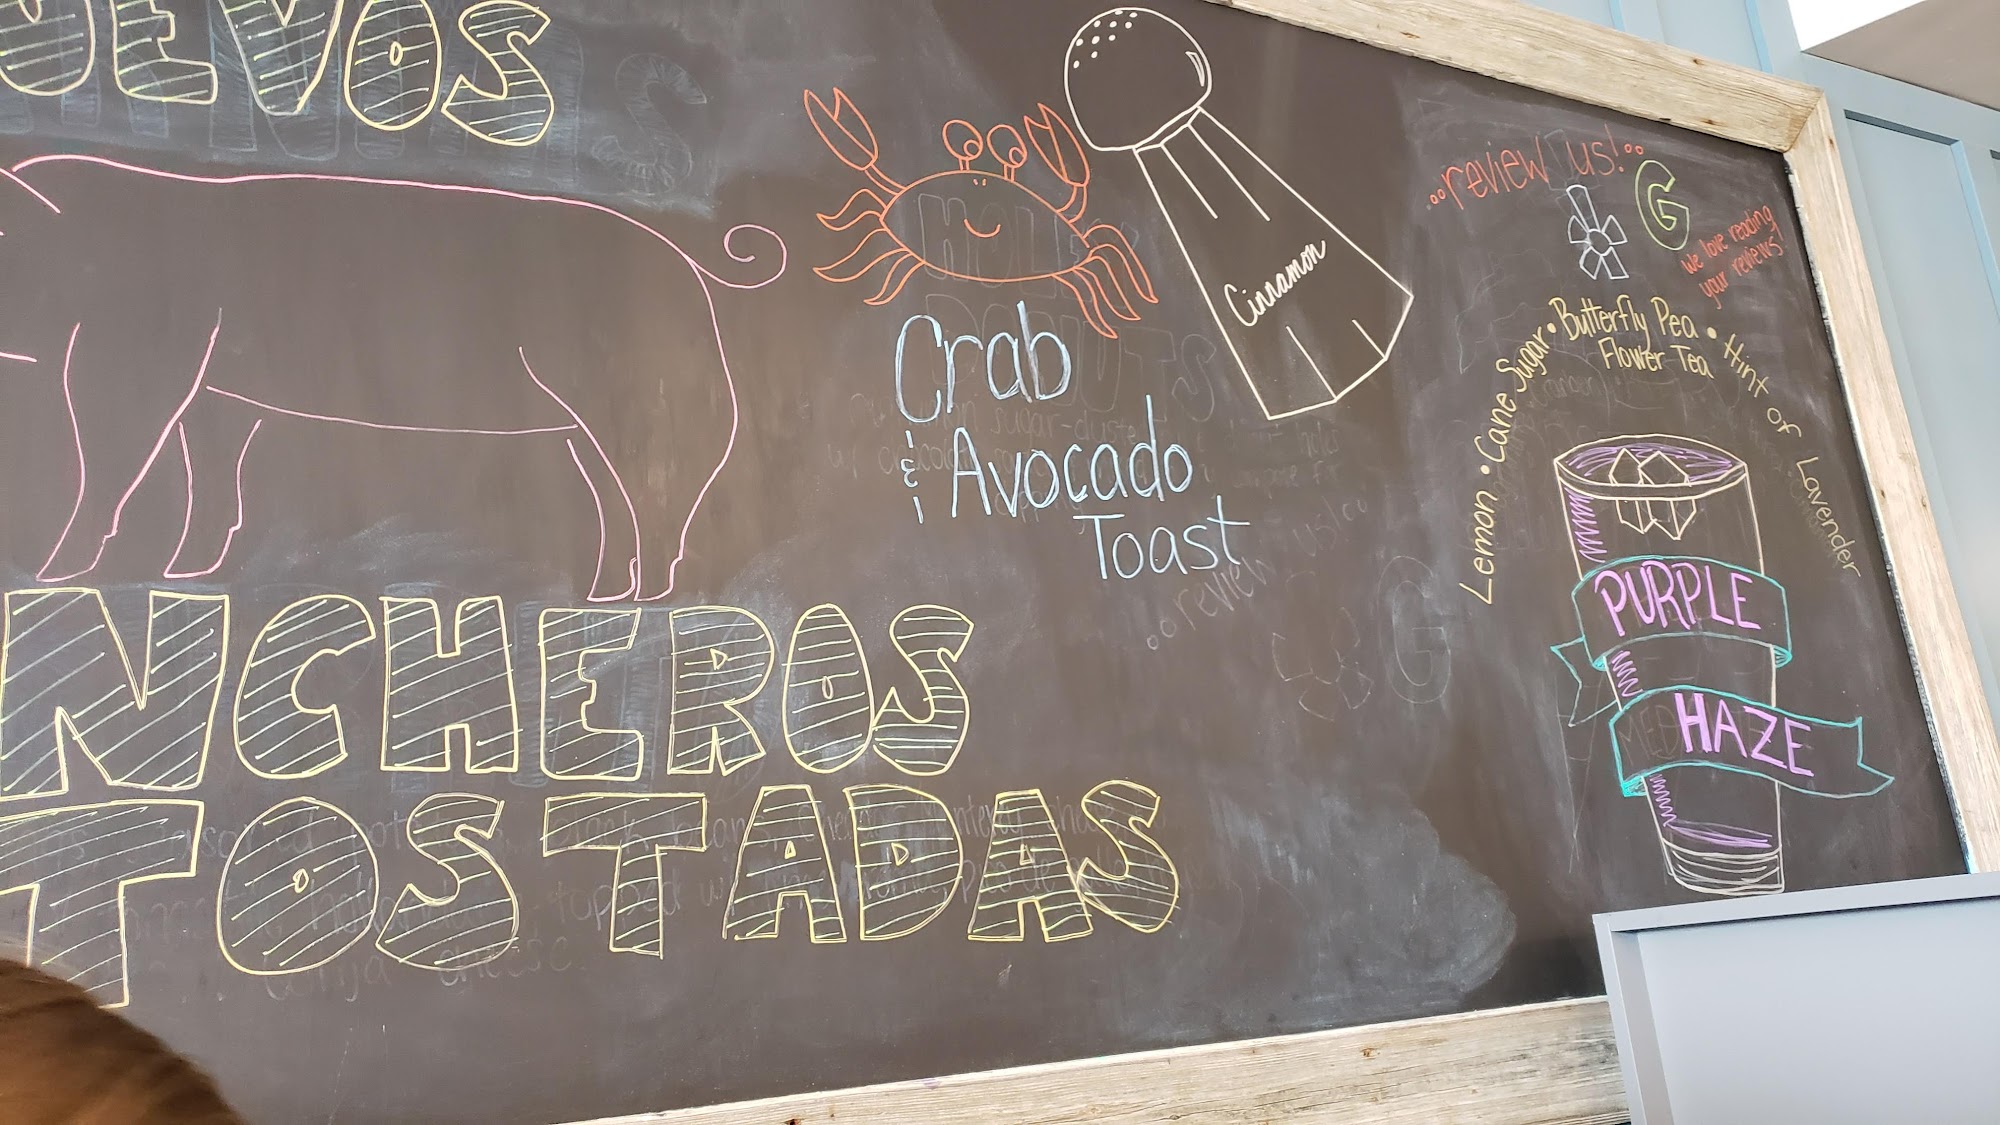 UEVOS
NCHEROS
TOSTADAS
Crab
& Avocado
Toast
Cinnamon
..review us!..
G
we love reading
your reviews!
Lemon • Cane Sugar • Butterfly Pea Flower Tea • Hint of Lavender
PURPLE
HAZE
..review
G